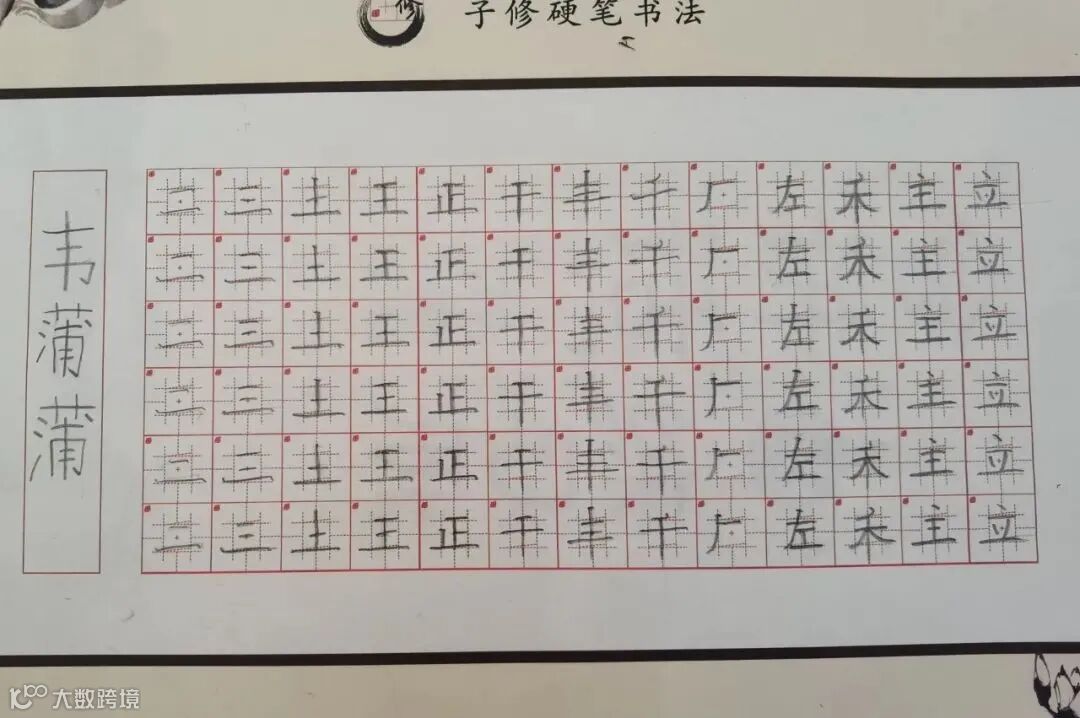 修
子修硬笔书法
二三土王正干丰千厂左禾主立
二三土王正干丰千厂左禾主立
二三土王正干丰千厂左禾主立
二三土王正干丰千厂左未主立
二三土王正干丰千厂左未主立
二三土王正干丰千厂左禾主立
韦蒲蒲
大数跨境